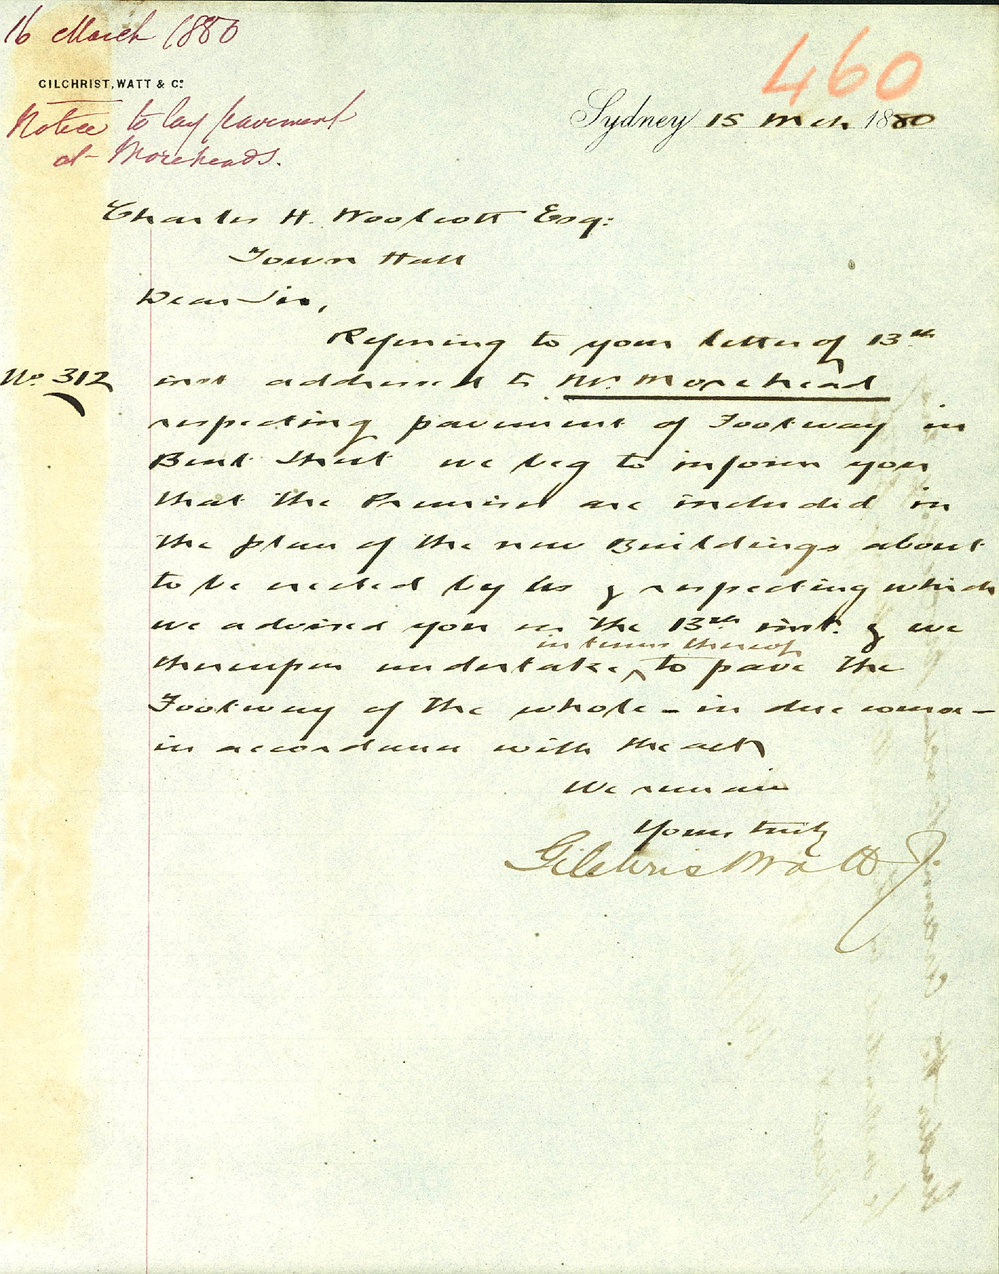 16 March 1880
460
GILCHRIST, WATT & Co
Notice to lay pavement
at Moreheads.
Sydney 15 Mch 1880
Charles H. Woolcott Esq:
Town Hall
Dear Sir,
Referring to your letter of 13th
No. 312
inst addressed to Mr. Morehead
respecting pavement of Footway in
Bent Street we beg to inform you
that the Premises are included in
the plan of the new Buildings about
to be erected by us & respecting which
we advised you on the 13th inst. & we
in terms thereof
thereupon undertake, to pave the
Footway of the whole - in due course -
in accordance with the act
We remain
Yours truly
Gilchrist Watt